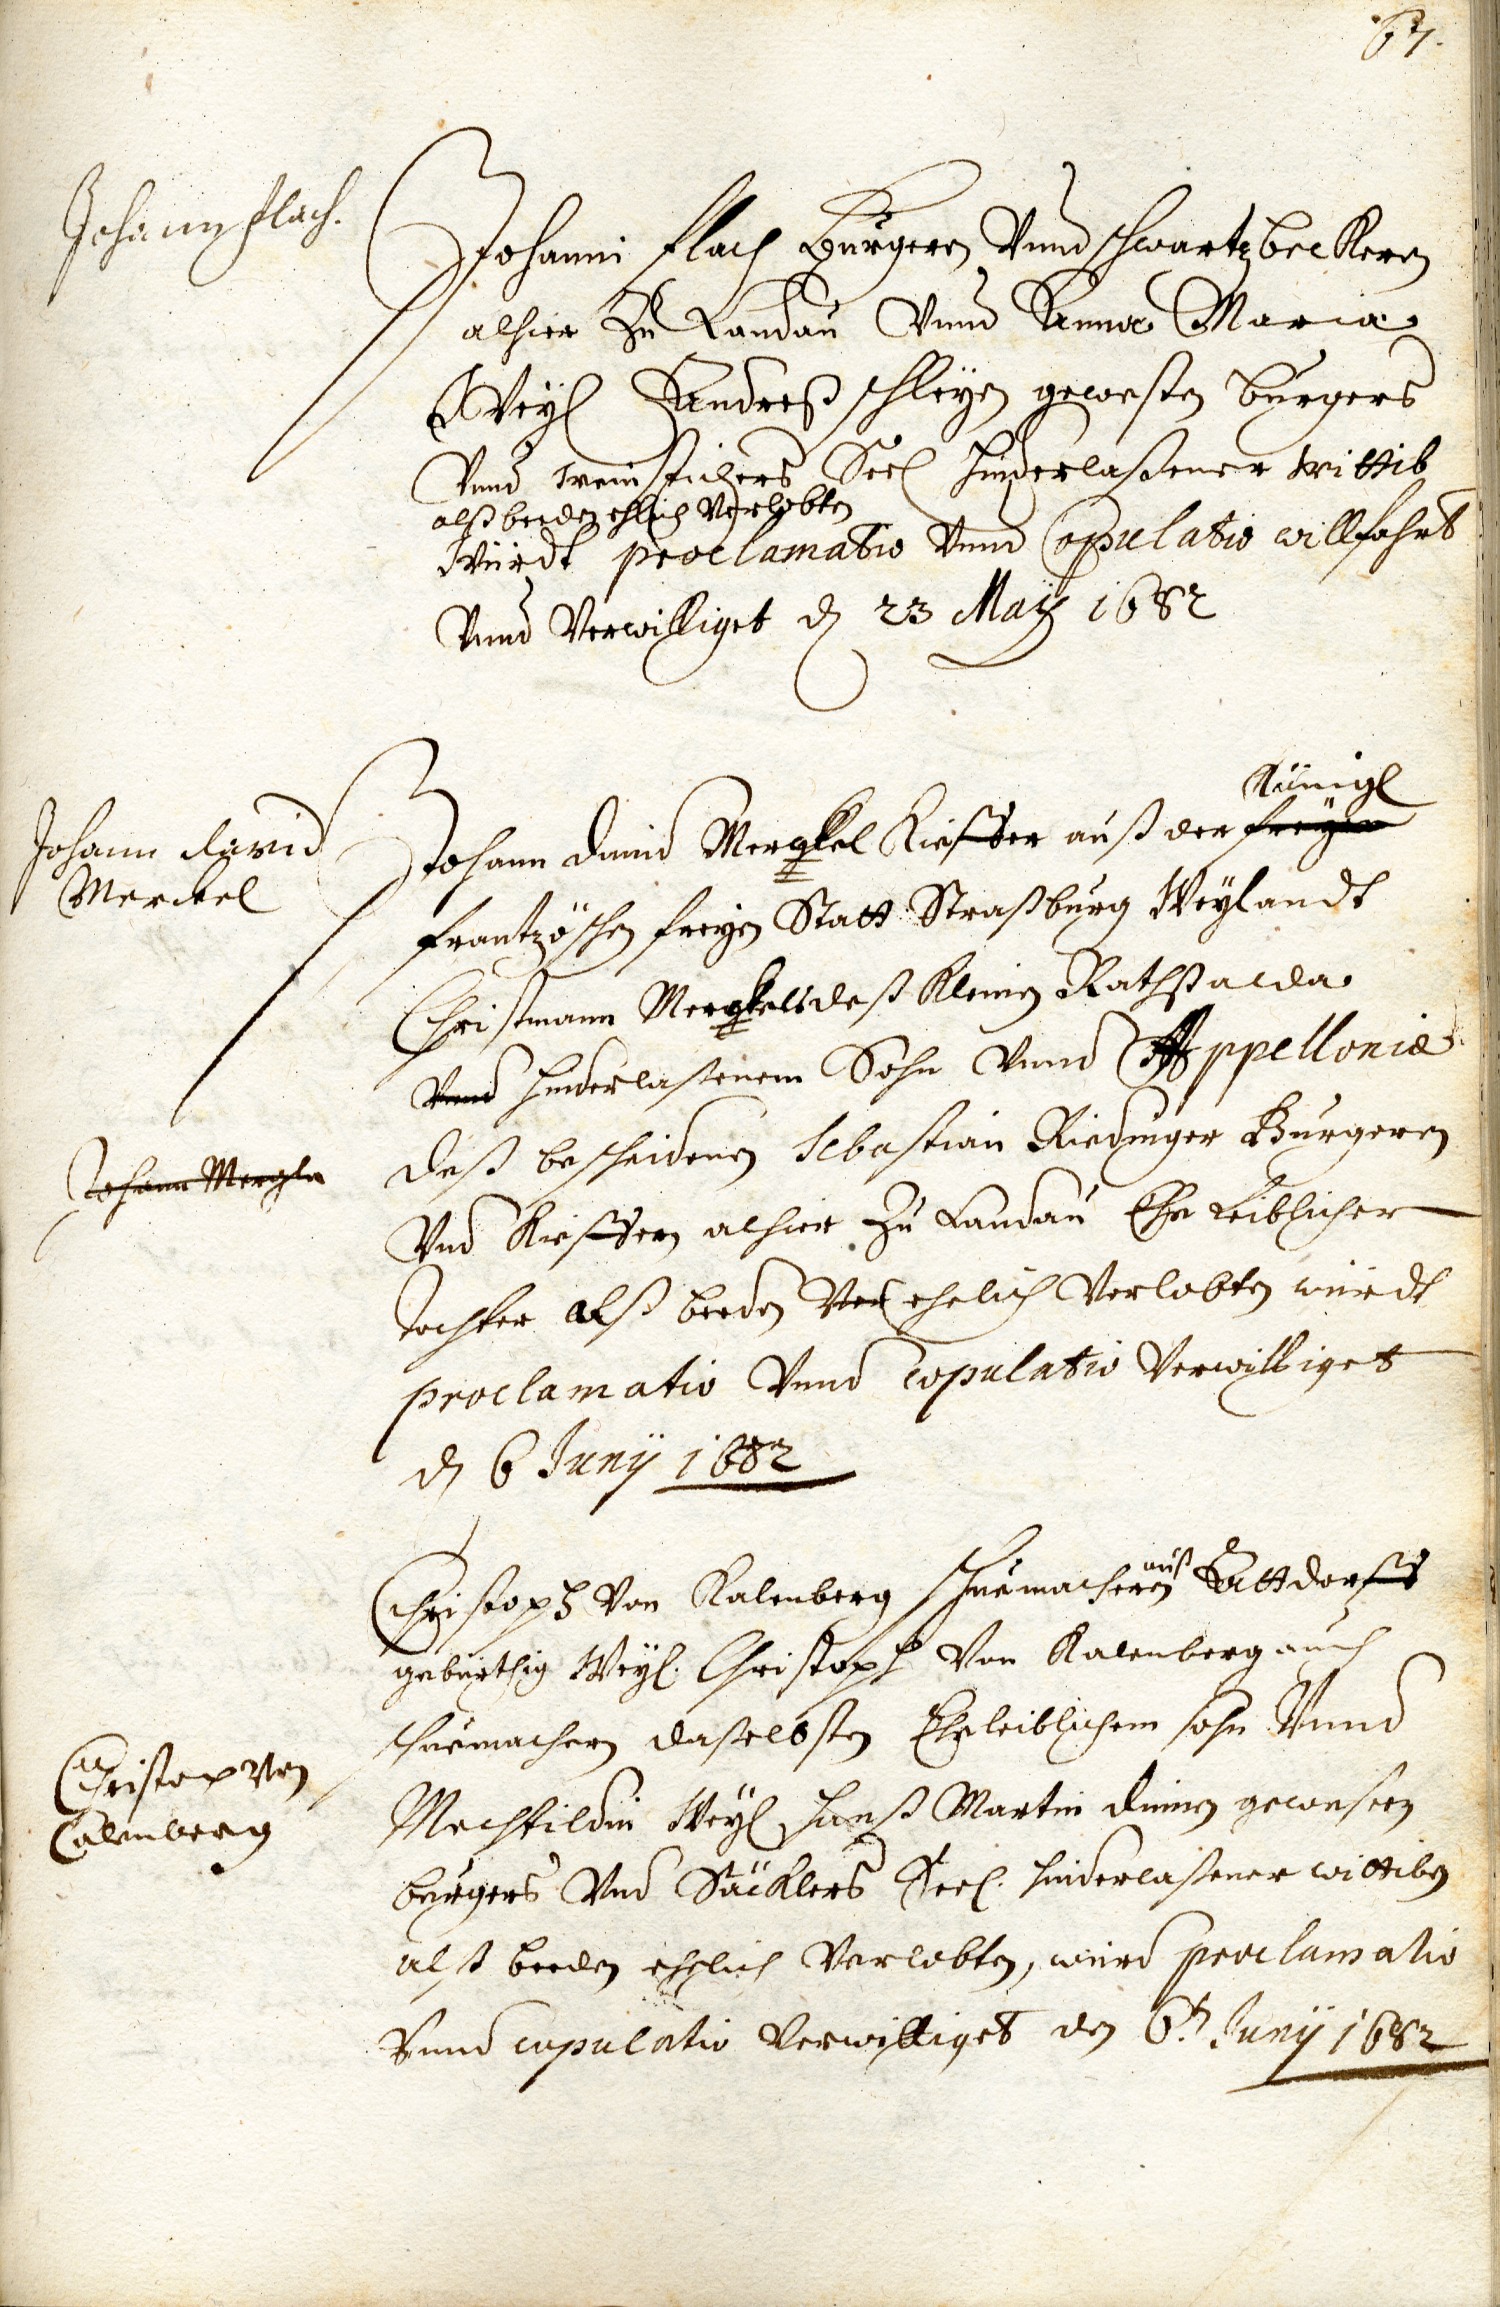 67.
Johann Flach.
Johanni Flach Burgern Vnnd schwartzbeckern
alhier Zu Landau Vnnd Anna Maria
Weyl Andreß schleyen gewesten burgers
Vnnd weinstichers Seel hinderlaßener wittib
alß beeden ehlich Verlobten
Würdt proclamatio Vnnd Copulatio willfahrt
Vnnd Verwilliget d 23 Maÿ 1682
Johann david
Merckel
Künigl
Johann david Merckel Kieffer auß der freyen
frantzöschen freyen Statt Straßburg Weylandt
Christmann Merckels deß kleinen Raths alda
Vnnd hinderlaßenem Sohn Vnnd Appellonia
Johann Mergle
deß bescheidenen Sebastian Riedinger Burgeren
Vnd Kieffern alhier Zu Landau Ehe leiblicher
tochter alß beeden Ver ehelich Verlobten würdt
proclamatio Vnnd Copulatio Verwilliget
d 6 Junÿ 1682
auß
Christoph Von Kalenberg schuemachern Attdorff
gebürthig Weyl. Christoph Von Kalenberg auch
schuemachern daselbsten Eheleiblichem sohn Vnnd
Christop Von
Calenberg
Mechtildin Weyl hanß Martin gewesten
burgers Vnd Säcklers Seel. hinderlaßener wittiben
alß beeden ehelich Verlobten, würd proclamatio
Vnnd copulatio Verwilliget den 6t. Junÿ 1682